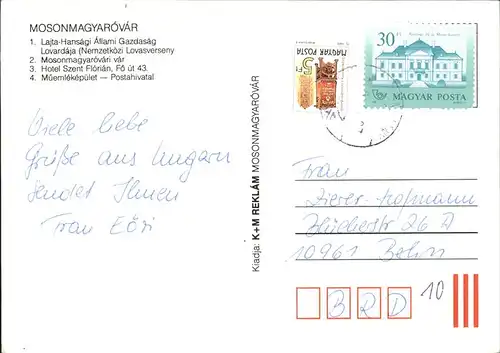 MOSONMAGYARÓVÁR
1. Lajta-Hansági Állami Gazdaság
Lovardája (Nemzetközi Lovasverseny
2. Mosonmagyaróvári vár
3. Hotel Szent Flórián, Fő út 43.
4. Műemléképület — Postahivatal
Viele liebe
Grüße aus Ungarn
sendet Ihnen
Frau Eőri
Kiadja: K+M REKLÁM MOSONMAGYARÓVÁR
5 Ft
MAGYAR POSTA
30 Ft
MAGYAR POSTA
Frau
Zierer-Hofmann
Blücherstr 26 A
10961 Berlin
B R D
10